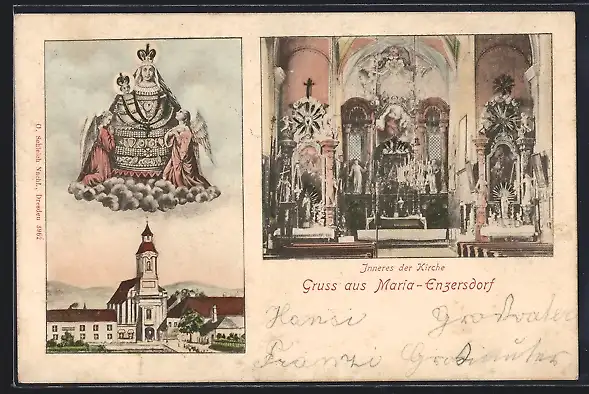 O. Schleich Nachf., Dresden 3962
Inneres der Kirche
Gruss aus Maria-Enzersdorf
Hansi Großvater
Franzi Großmutter